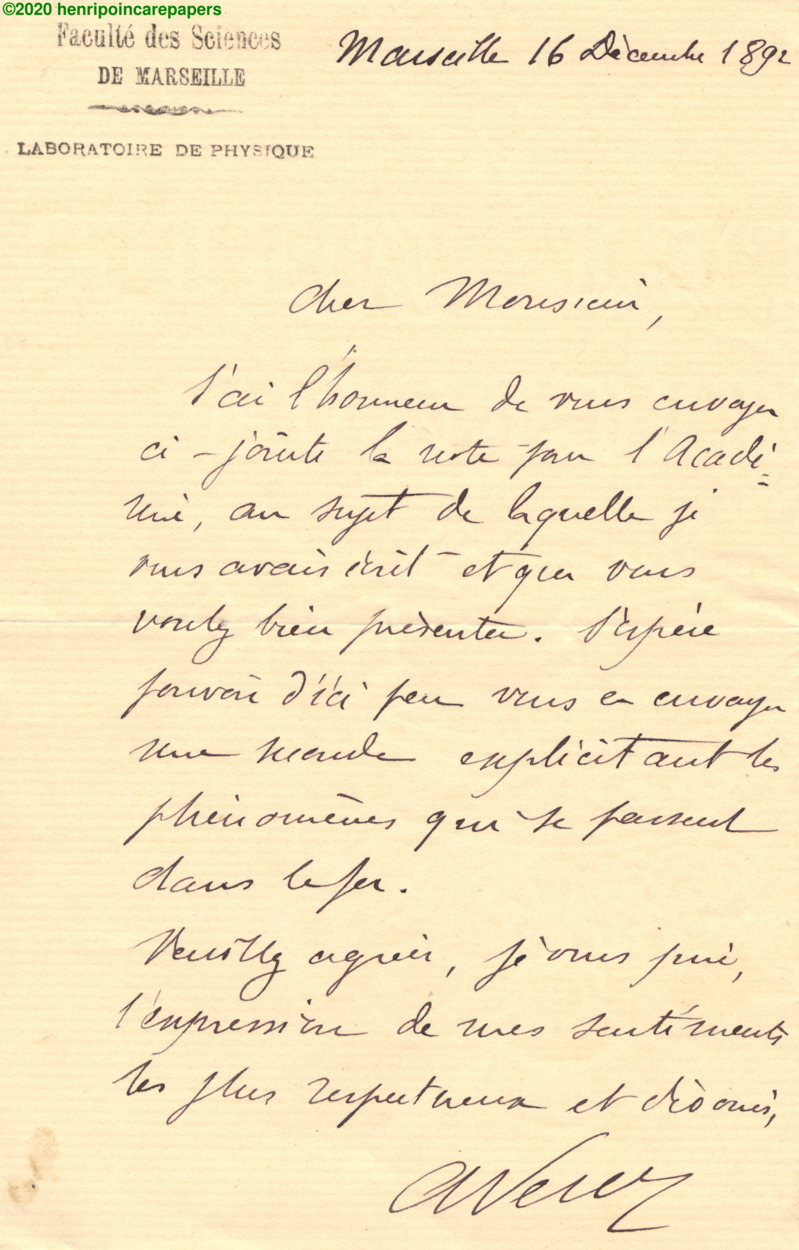 ©2020 henripoincarepapers
Faculté des Sciences
DE MARSEILLE
LABORATOIRE DE PHYSIQUE
Marseille 16 Décembre 1892
Cher Monsieur,
J'ai l'honneur de vous envoyer
ci-jointe la note pour l'Acadé=
mie, au sujet de laquelle je
vous avais écrit et que vous
voulez bien présenter. J'espère
pouvoir d'ici peu vous en envoyer
une seconde explicitant les
phénomènes qui se passent
dans le fer.
Veuillez agréer, je vous prie,
l'expression de mes sentiments
les plus respectueux et dévoués,